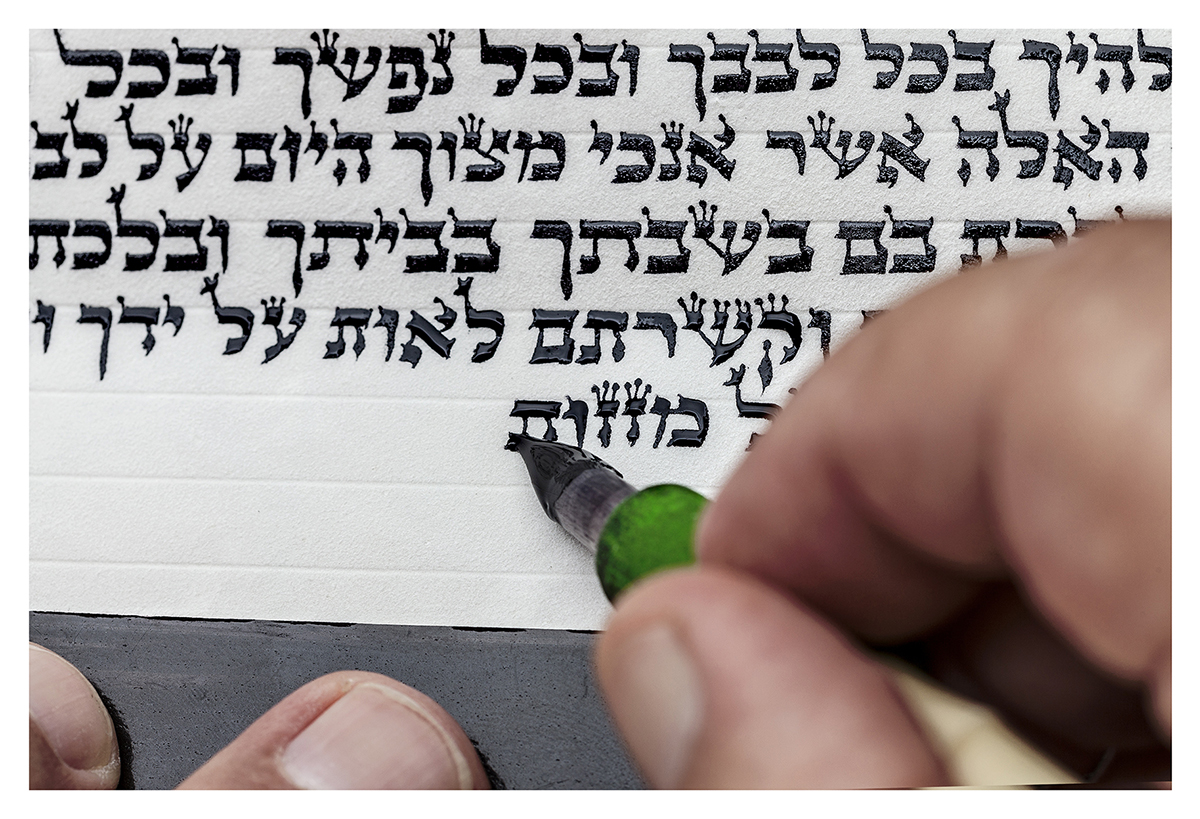 להיך בכל לבבך ובכל נפשך ובכל
האלה אשר אנכי מצוך היום על לב
בם בשבתך בביתך ובלכת
וקשרתם לאות על ידך ו
מזזות